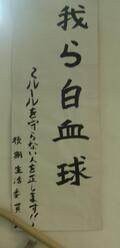 我ら白血球
〜ルールを守らない人を正します!!〜
後期生活委員